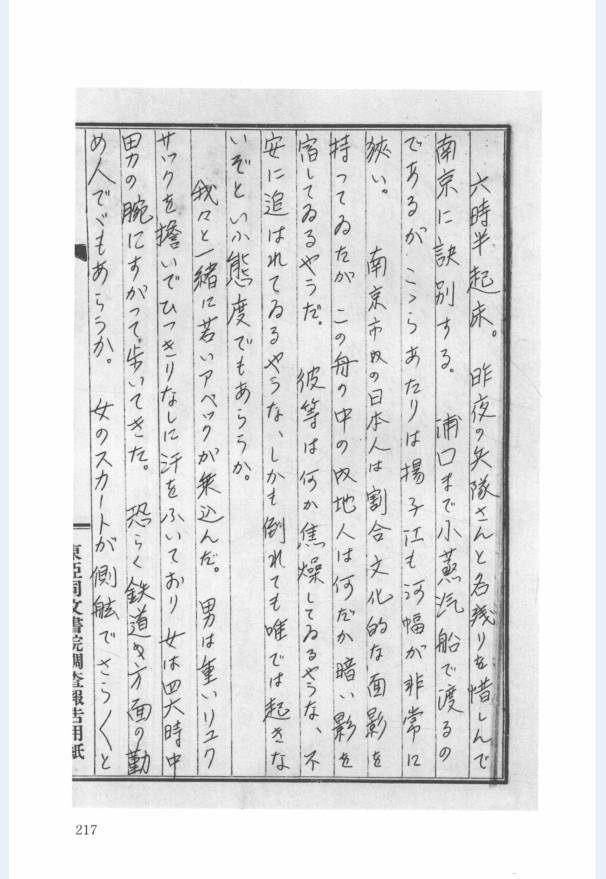 六時半起床。 昨夜の兵隊さんと名残りを惜しんで
南京に訣別する。 浦口まで小蒸汽船で渡るの
であるが こゝらあたりは揚子江も河幅が非常に
狹い。 南京市内の日本人は割合文化的な面影を
持ってゐたが この舟の中の内地人は何だか暗い影を
宿してゐるやうだ。 彼等は何か焦燥してゐるやうな、不
安に追はれてゐるやうな、しかも倒れても唯では起きな
いぞといふ態度でもあらうか。
我々と一緒に若いアベックが乗込んだ。 男は重いリュク
サックを擔いでひっきりなしに汗をふいており 女は四六時中
男の腕にすがって歩いてきた。 恐らく鉄道方面の勤
め人でゞもあらうか。 女のスカートが側舷でさらくと
東亞同文書院調査報告用紙
217